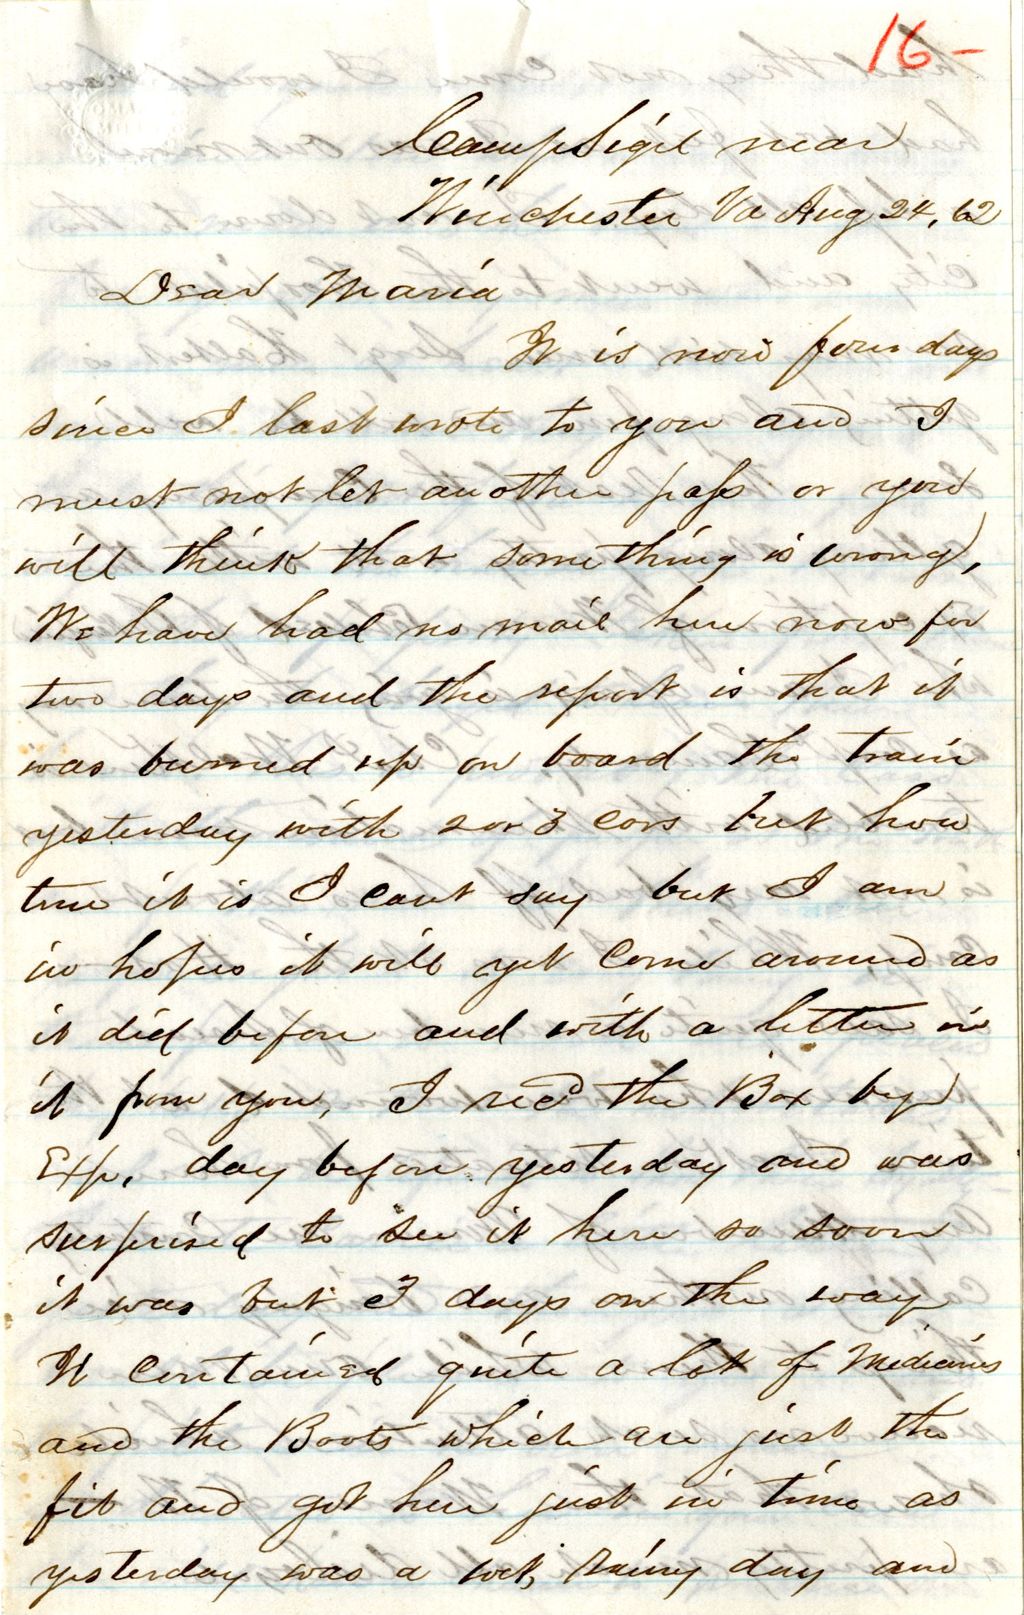 16-
Camp Sigel near
Winchester Va Aug 24, 62
Dear Maria
It is now four days
since I last wrote to you and I
must not let another pass or you
will think that something is wrong,
We have had no mail here now for
two days and the report is that it
was burned up on board the train
yesterday with 2 or 3 cars but how
true it is I cant say but I am
in hopes it will yet Come around as
it did before and with a letter in
it from you, I recd the Box by
Exp, day before yesterday and was
surprised to see it here so soon
it was but 3 days on the way
It Contained quite a lot of Medicines
and the Boots which are just the
fit and got here just in time as
yesterday was a wet, rainy day and